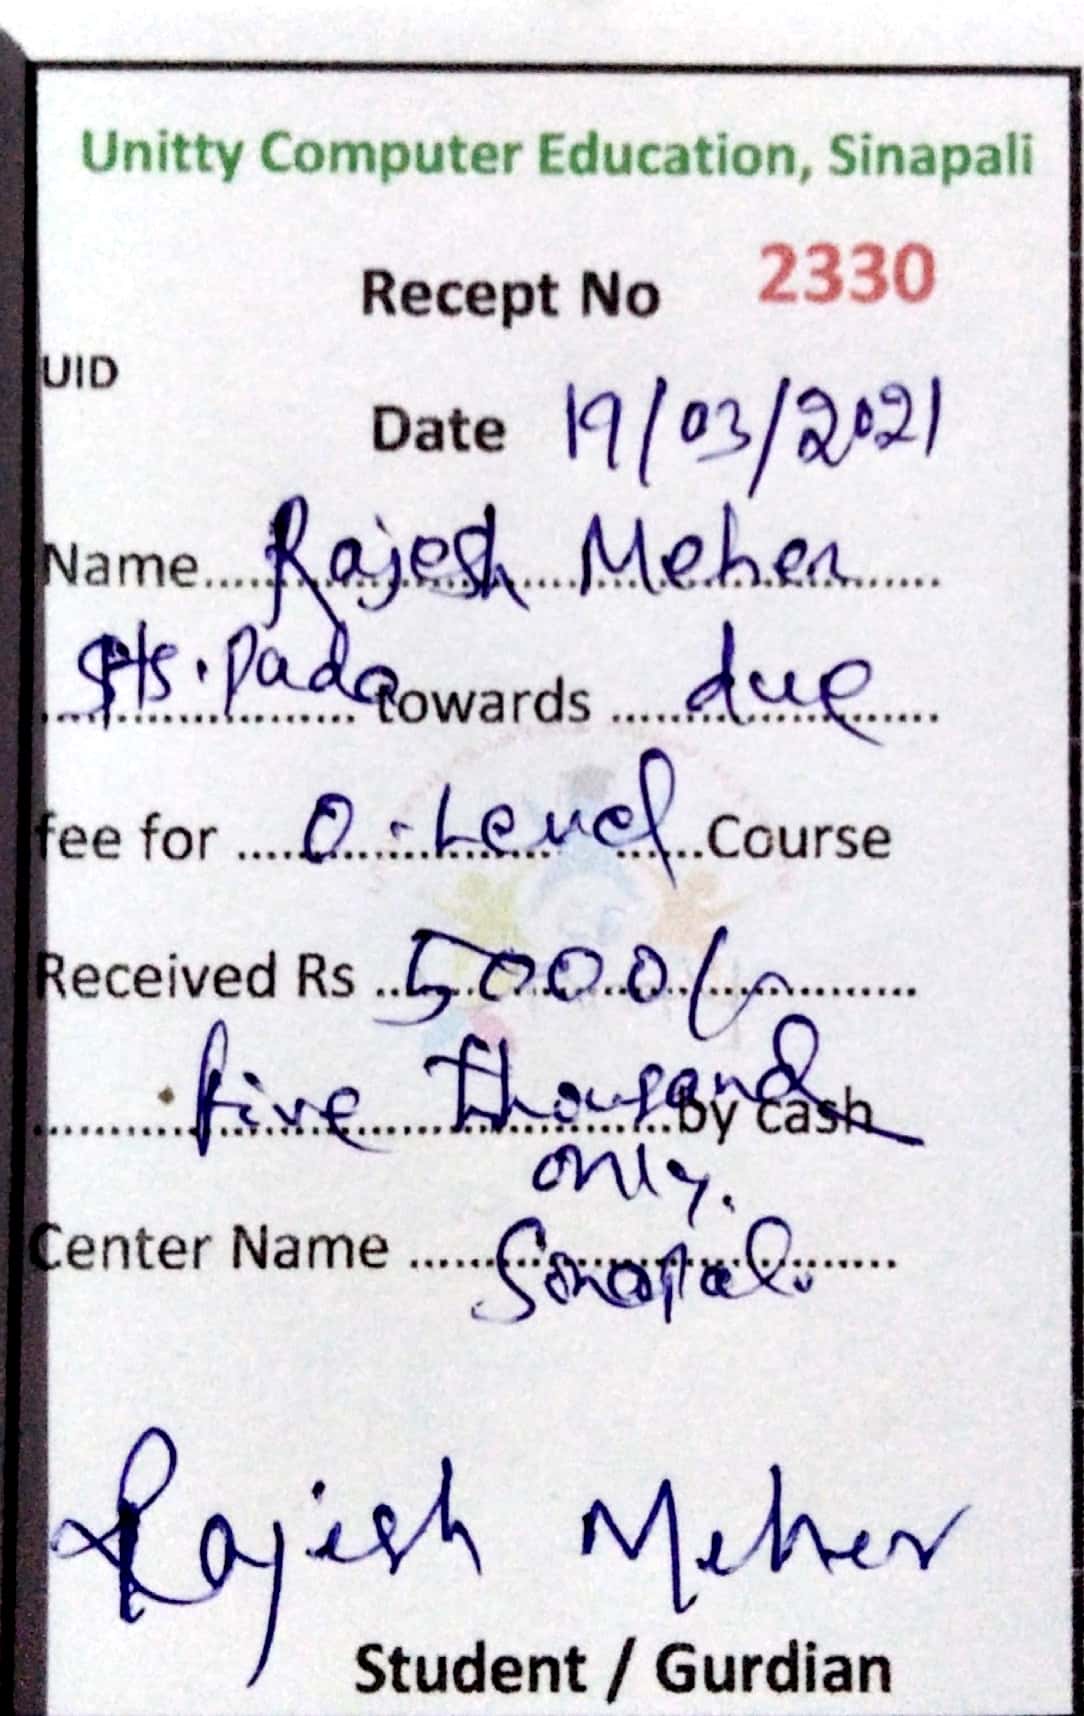 Unitty Computer Education, Sinapali
Recept No 2330
UID
Date 19/03/2021
Name.....Rajesh Meher.....
Pada towards .....due.....
fee for .....O-Level.....Course
Received Rs ..5000/-.....
.....five thousand.....by cash
only.
Center Name .....Sinapali.....
Rajesh Meher
Student / Gurdian